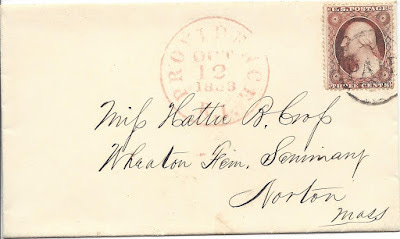 U.S. POSTAGE
THREE CENTS
PROVIDENCE R.I.
OCT
12
Miss Hattie B. Crop
Wheaton Fem. Seminary
Norton
Mass